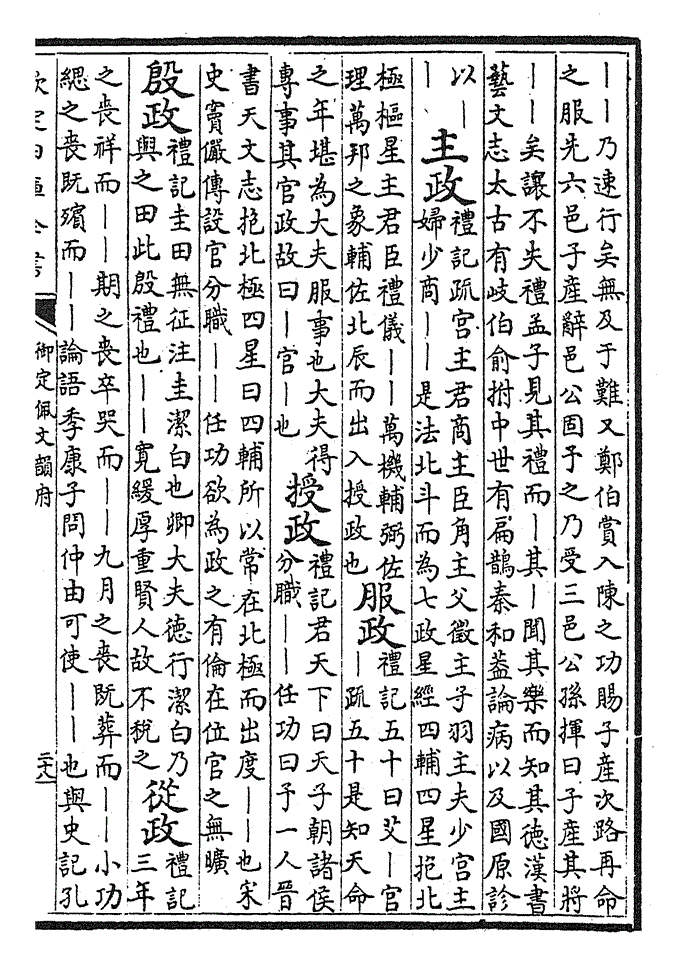 ——乃速行矣無及于難又鄭伯賞入陳之功賜子產次路再命
之服先六邑子產辭邑公固予之乃受三邑公孫揮曰子產其將
——矣讓不失禮孟子見其禮而—其—聞其樂而知其徳漢書
藝文志太古有岐伯俞拊中世有扁鵲秦和葢論病以及國原診
以—
—
主政
禮記疏宮主君商主臣角主父徵主子羽主夫少宮主
婦少商——是法北斗而為七政星經四輔四星抱北
極樞星主君臣禮儀——萬機輔弼佐
理萬邦之象輔佐北辰而出入授政也
服政
禮記五十曰艾—官
—疏五十是知天命
之年堪為大夫服事也大夫得
專事其官政故曰—官—也
授政
禮記君天下曰天子朝諸侯
分職——任功曰予一人晉
書天文志抱北極四星曰四輔所以常在北極而出度——也宋
史竇儼傳設官分職——任功欲為政之有倫在位官之無曠
殷政
禮記圭田無征注圭潔白也卿大夫徳行潔白乃
與之田此殷禮也——寛緩厚重賢人故不稅之
從政
禮記
三年
之喪祥而——期之喪卒哭而——九月之喪既葬而——小功
緦之喪既殯而——論語季康子問仲由可使——也與史記孔
欽定四庫全書
御定佩文韻府
二十八